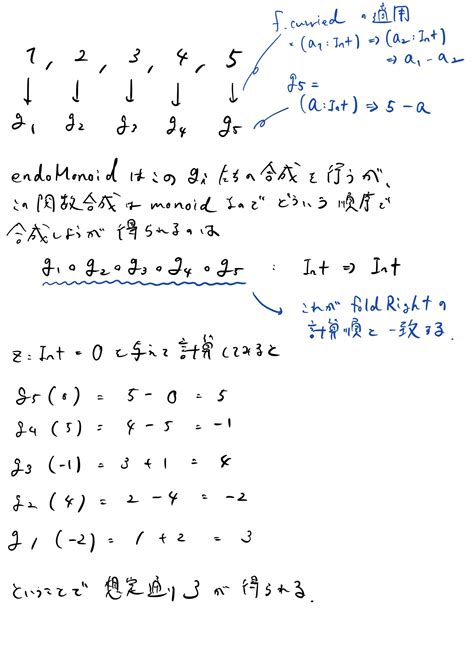 f.curried の適用
= (a₁:Int) ⇒ (a₂:Int)
⇒ a₁ - a₂
1, 2, 3, 4, 5
↓ ↓ ↓ ↓ ↓
g₁ g₂ g₃ g₄ g₅
g₅ =
(a:Int) ⇒ 5 - a
endoMonoid はこの gᵢ たちの合成を行うが、
この関数合成は monoid なので どういう順序で
合成しようが 得られるのは
g₁ ∘ g₂ ∘ g₃ ∘ g₄ ∘ g₅ : Int ⇒ Int
これが foldRight の
計算順と一致する.
z:Int = 0 を与えて計算してみると
g₅ (0) = 5 - 0 = 5
g₄ (5) = 4 - 5 = -1
g₃ (-1) = 3 + 1 = 4
g₂ (4) = 2 - 4 = -2
g₁ (-2) = 1 + 2 = 3
ということで 想定通り 3 が 得られる.